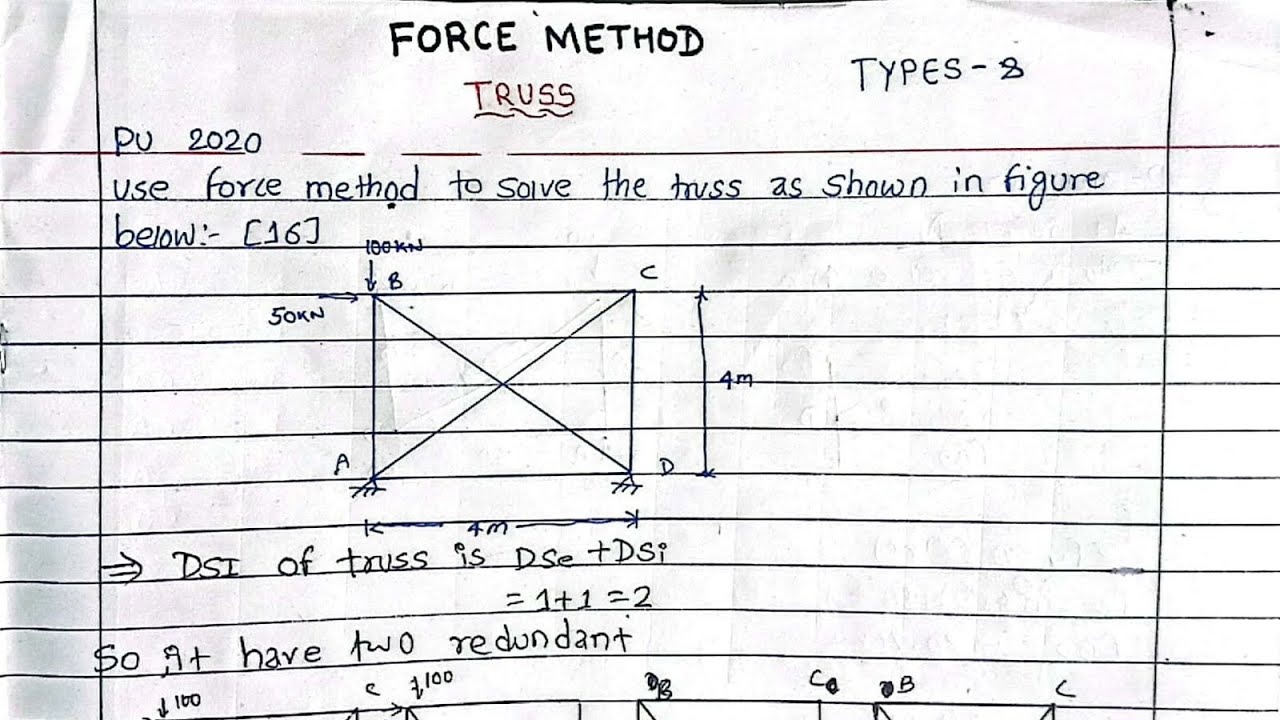 FORCE METHOD
TYPES-8
TRUSS
PU 2020
Use force method to solve the truss as shown in figure
below:- [16]
100KN
B
C
50KN
4m
A
D
4m
⇒ DSI of truss is DSe + DSi
= 1+1 = 2
So, it have two redundant
100
C
100
B
C
B
C